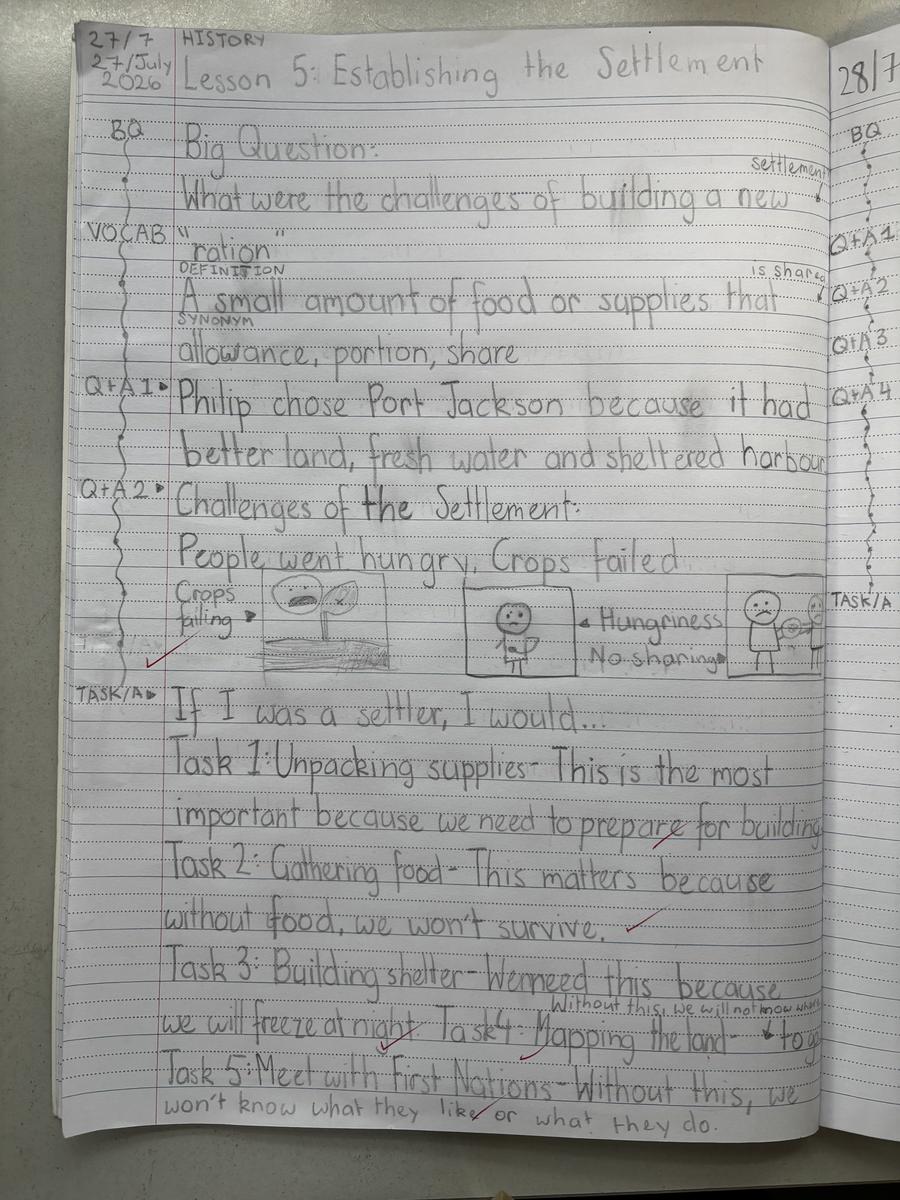 27/7 HISTORY
27/July 2026
Lesson 5: Establishing the Settlement
28/7
BQ
Big Question:
settlement
What were the challenges of building a new
VOCAB
"ration"
DEFINITION
is shared
A small amount of food or supplies that
SYNONYM
allowance, portion, share
Q+A 1
Philip chose Port Jackson because it had
better land, fresh water and sheltered harbour
Q+A 2
Challenges of the Settlement:
People went hungry. Crops failed
Crops
failing
Hungriness
No sharing
TASK/A
If I was a settler, I would...
Task 1: Unpacking supplies- This is the most
important because we need to prepare for building
Task 2: Gathering food- This matters because
without food, we won't survive.
Task 3: Building shelter- We need this because
Without this, we will not know where
we will freeze at night. Task 4: Mapping the land- to go
Task 5: Meet with First Nations- Without this, we
won't know what they like or what they do.
BQ
Q+A 1
Q+A 2
Q+A 3
Q+A 4
TASK/A